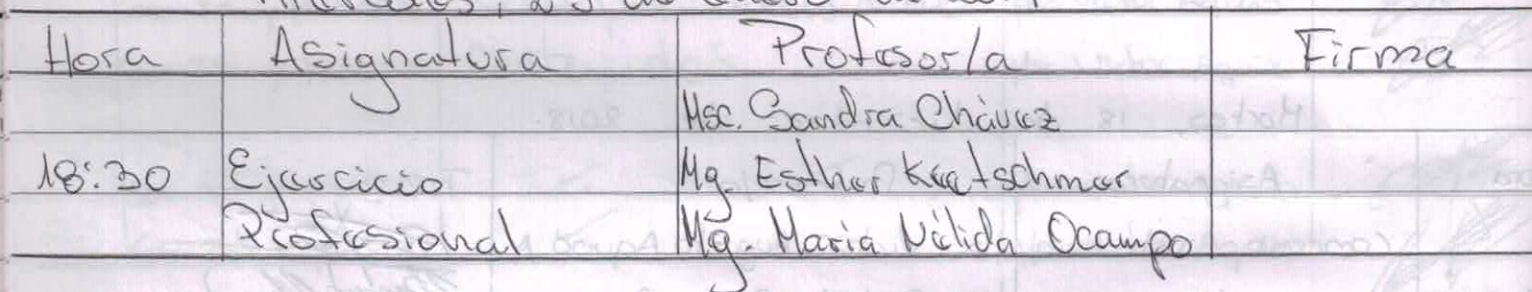 Hora Asignatura Profesor/a Firma
Msc. Sandra Chávez
18:30 Ejercicio Mg. Esther Kretschmer
Profesional Mg. Maria Nélida Ocampo